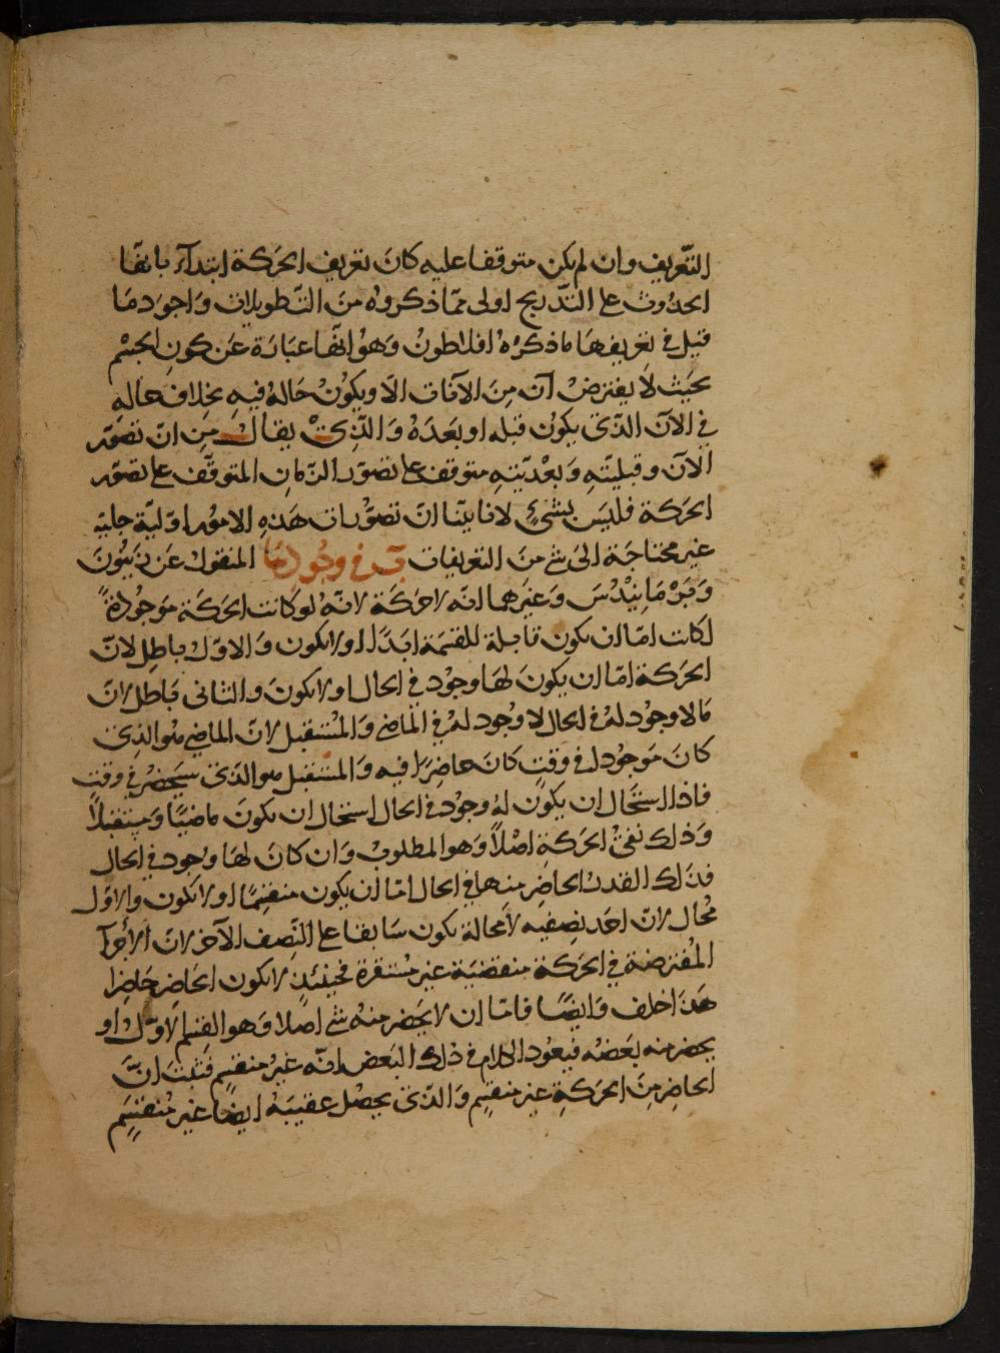 التّعريف وان لم يكن متوقفا عليه كانَ تعريف الحرَكة ابتدآء بانها
الحدُوث على التّدريج اولى ممّا ذكروه منَ التّطويلات وَاجوَد مَا
قيل فى تعريفهَا ماذكرُهُ افلاطونُ وَهوُ انّها عبَارَة عَن كونِ الجسْم
بحَيث لاَ يفترضُ آن مِنَ الآنَات الاّ ويكوُنُ حَالهُ فيهِ بخلاف حاله
فى الآن الذّى يكوُن قبله او بعَدَهُ وَالذّىْ يقال مِن انّ تصوّر
الآن وقبليّتهِ وَبعْديّتهِ متوقف على تصوّر الزّمانِ المتوقّف على تصوّر
الحرَكة فليَس بشئٍ لانا بيّنا انّ تصوّرات هَذهِ الاموُر اوّليّة جليّه
غير محتاجَة الىَ شئ منَ التعريفات فى وجُودهَا المنقول عَن زينُونَ
وَبَرْمَانيْدُسَ وَغيَرهما انّه لاحرَكَة لانّهُ لوكانت الحرَكَة مَوجُودَةً
لكانت امّا ان تكون قابلة للقسمَة ابَدًا اولا تكون وَالاوّل باطِل لانّ
الحرَكة امّا ان يكونَ لهَا وجوُد فى الحال اولا تكونَ والثانى بَاطل لانّ
مَالا وجوُد لهُ فى الحال لا وجُود لهُ فى الماضى وَالمسُتقبل لانّ الماضى هوُ الذِىْ
كانَ مَوجوُدا فى وقتٍ كانَ حاضِرًا فيه وَالمستقبل هو الذّى سيَحضرُ فى وقتٍ
فاذا استحَال ان يكوُن لهُ وجوُد فى الحال استحَال ان تكونَ ماضيًا وَمستقبلاً
وَذلك نفىْ الحرَكة اصْلاً وَهو المطلوب وَان كانَ لهَا وجود فى الحال
فذلك القدر الحاضِر منهَا فى الحال امّا ان يكون منقسِمًا اولا تكون والاوّل
مُحال لانّ احَد نِصفيه لاَمحالة تكون سَابقا على النّصف الآخر لانّ الأجزآ
المُفترضة فى الحرَكة منقضيَة غير مسُتقرة فحينئذٍ لا تكون الحاضر حَاضِرا
هَذا خلف وَايضًا فامّا ان لا يحَضر منهُ شئ اصلا وَهو القِسْم الاوّل او
يحضر منه بعَضهُ فيعُود الكلام فى ذلك البَعض انّه غيرُ منقسِم فثبتَ انّ
الحاضِر مِنَ الحرَكةِ غير منقسِم وَالذّى يحصُل عَقيبَهُ ايضًا غير مُنقسِم